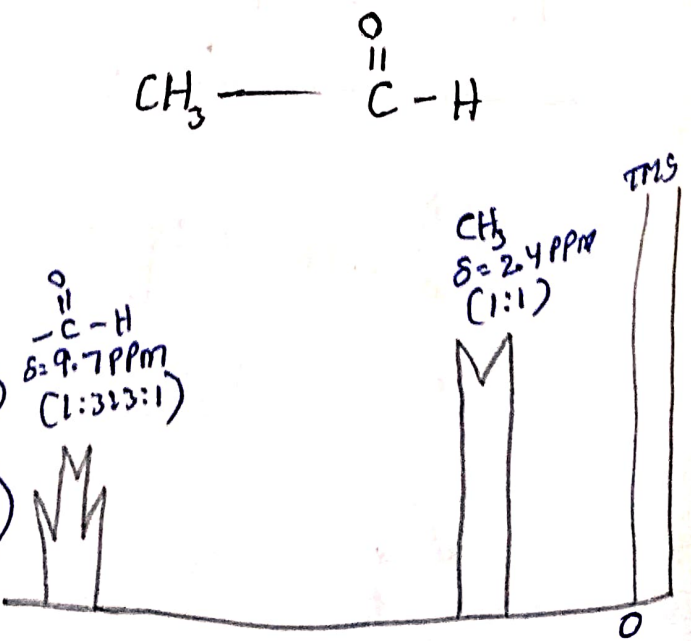 O
||
CH₃ — C - H
TMS
CH₃
δ = 2.4 PPM
(1:1)
O
||
- C - H
δ = 9.7 PPM
(1:3:3:1)
0